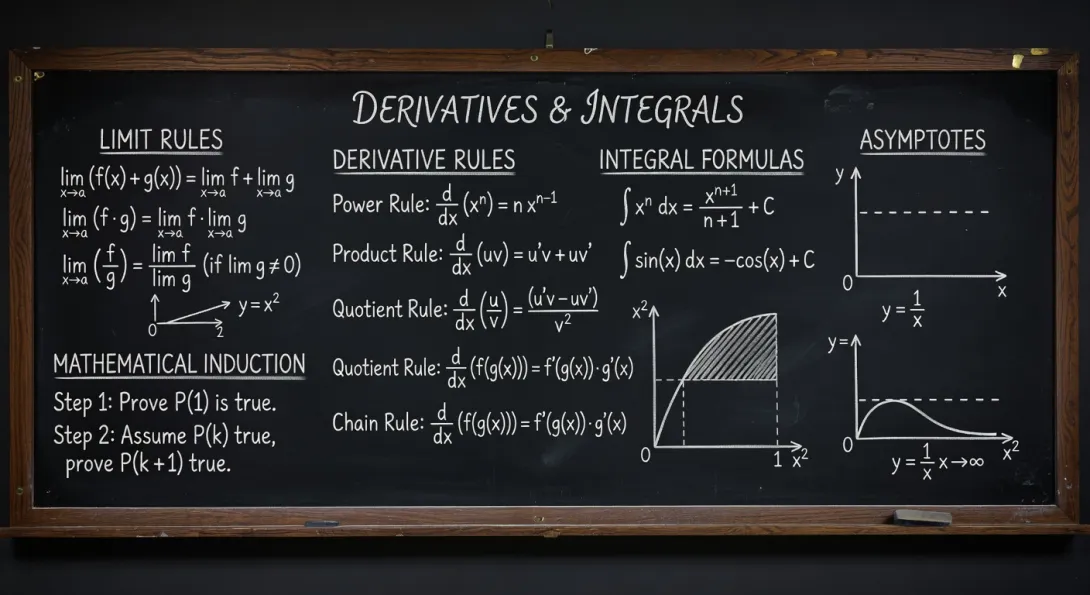 DERIVATIVES & INTEGRALS
LIMIT RULES
lim x→a (f(x)+g(x)) = lim x→a f + lim x→a g
lim x→a (f·g) = lim x→a f · lim x→a g
lim x→a (f/g) = lim f/lim g (if lim g ≠ 0)
y=x²
0 2
MATHEMATICAL INDUCTION
Step 1: Prove P(1) is true.
Step 2: Assume P(k) true,
prove P(k+1) true.
DERIVATIVE RULES
Power Rule: d/dx (xⁿ) = n xⁿ⁻¹
Product Rule: d/dx (uv) = u'v + uv'
Quotient Rule: d/dx (u/v) = (u'v − uv')/v²
Quotient Rule: d/dx (f(g(x))) = f'(g(x)) · g'(x)
Chain Rule: d/dx (f(g(x))) = f'(g(x)) · g'(x)
INTEGRAL FORMULAS
∫ xⁿ dx = xⁿ⁺¹/n+1 + C
∫ sin(x) dx = −cos(x) + C
x²
0 1 x²
ASYMPTOTES
y
0 x
y = 1/x
y=
0 x²
y = 1/x x→∞